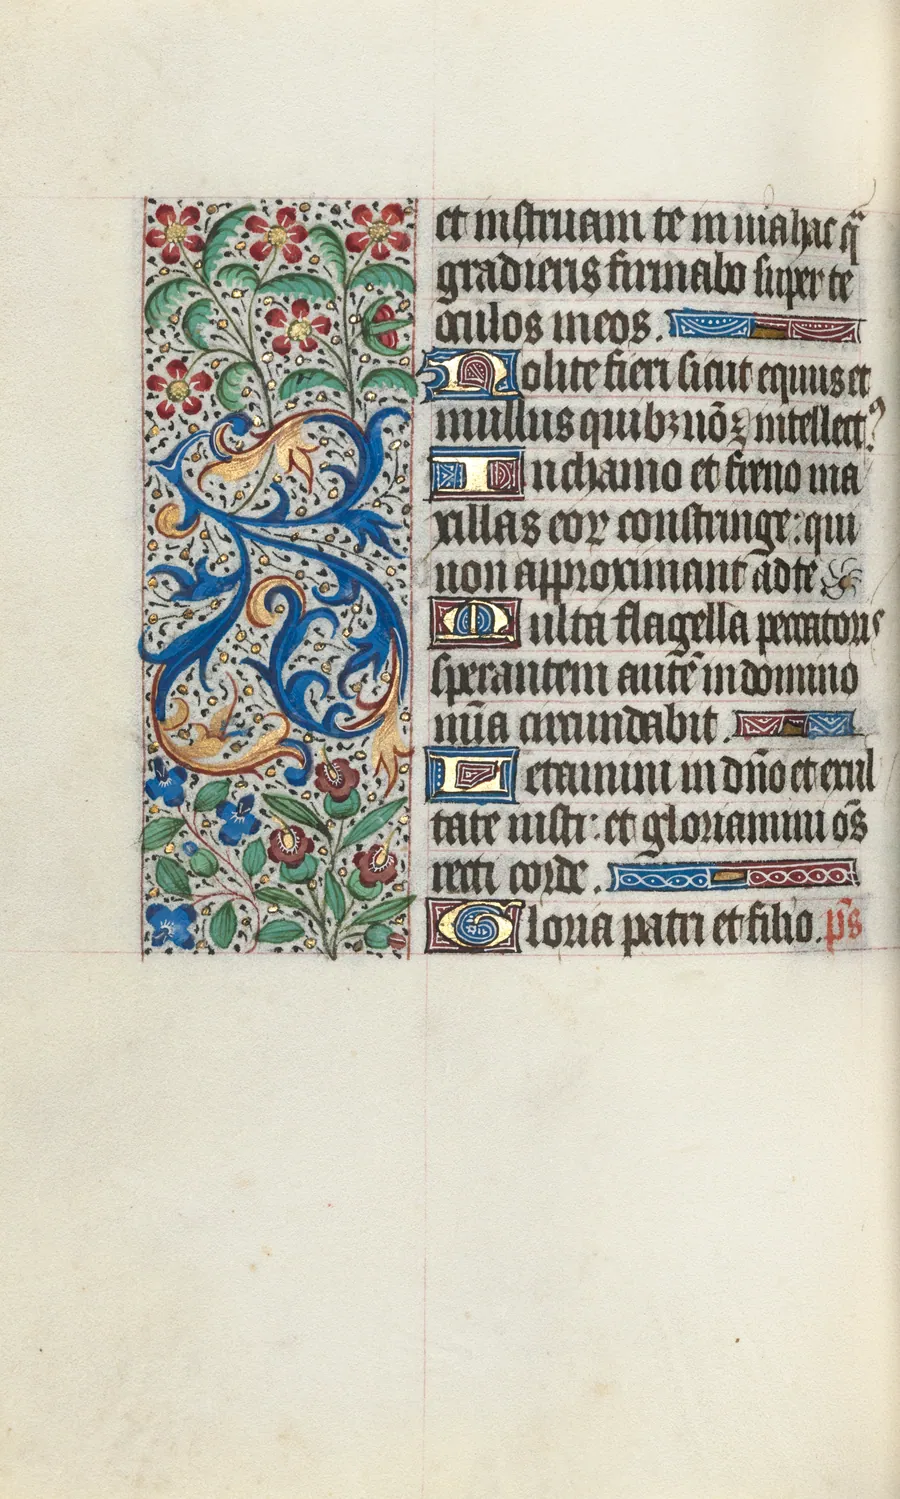 et instruam te in via hac q̄
gradieris firmabo super te
oculos meos.
Nolite fieri sicut equus et
mullus quibꝫ nō ē intellect᾿
In chamo et freno ma
xillas eoꝝ constringe: qui
non approximant ad te
Multa flagella peccatoris
sperantem autē in domino
mīa circundabit.
Letamini in dn̄o et exul
tate iusti: et gloriamini om̄s
recti corde.
Gloria patri et filio. p̄s